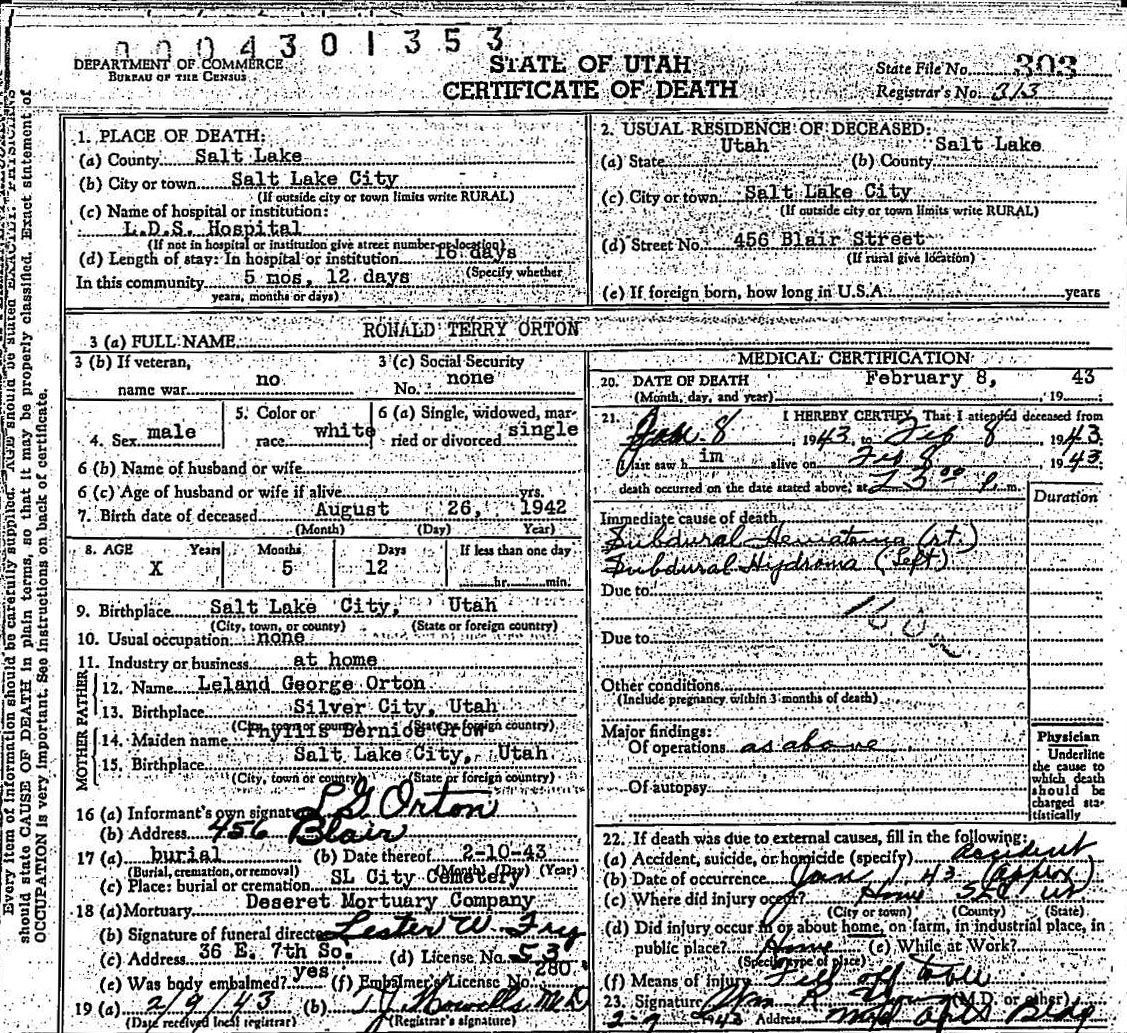 0004301353
DEPARTMENT OF COMMERCE
BUREAU OF THE CENSUS
STATE OF UTAH
CERTIFICATE OF DEATH
State File No. 303
Registrar's No. 313
Every item of information should be carefully supplied. AGE should be stated EXACTLY. PHYSICIANS
should state CAUSE OF DEATH in plain terms, so that it may be properly classified. Exact statement of
OCCUPATION is very important. See instructions on back of certificate.
1. PLACE OF DEATH:
(a) County Salt Lake
(b) City or town Salt Lake City
(If outside city or town limits write RURAL)
(c) Name of hospital or institution:
L.D.S. Hospital
(If not in hospital or institution give street number or location)
(d) Length of stay: In hospital or institution 16 days
(Specify whether
In this community 5 mos, 12 days
years, months or days)
2. USUAL RESIDENCE OF DECEASED:
(a) State Utah (b) County Salt Lake
(c) City or town Salt Lake City
(If outside city or town limits write RURAL)
(d) Street No. 456 Blair Street
(If rural give location)
(e) If foreign born, how long in U.S.A. years
3 (a) FULL NAME RONALD TERRY ORTON
3 (b) If veteran, name war no
3 (c) Social Security No. none
4. Sex male
5. Color or race white
6 (a) Single, widowed, married or divorced single
6 (b) Name of husband or wife
6 (c) Age of husband or wife if alive yrs.
7. Birth date of deceased August 26, 1942
(Month) (Day) Year)
8. AGE Years Months Days If less than one day
X 5 12 hr. min.
9. Birthplace Salt Lake City, Utah
(City, town, or county) (State or foreign country)
10. Usual occupation none
11. Industry or business at home
FATHER
12. Name Leland George Orton
13. Birthplace Silver City, Utah
(City, town or county) (State or foreign country)
MOTHER
14. Maiden name Phyllis Bernice Crow
15. Birthplace Salt Lake City, Utah
(City, town or county) (State or foreign country)
16 (a) Informant's own signature L G Orton
(b) Address 456 Blair
17 (a) burial (b) Date thereof 2-10-43
(Burial, cremation, or removal) (Month) (Day) (Year)
(c) Place: burial or cremation SL City Cemetery
18 (a) Mortuary Deseret Mortuary Company
(b) Signature of funeral director Lester W. Fry
(c) Address 36 E. 7th So. (d) License No. 53
(e) Was body embalmed? yes (f) Embalmer's License No. 280
19 (a) 2/9/43 (b) T.J. Howells M D
(Date received local registrar) (Registrar's signature)
MEDICAL CERTIFICATION
20. DATE OF DEATH February 8, 1943
(Month, day, and year)
21. I HEREBY CERTIFY, That I attended deceased from
Jan 8, 1943, to Feb 8 1943
I last saw him alive on Feb 8, 1943
death occurred on the date stated above, at m.
Duration
Immediate cause of death
Subdural Hematoma (rt.)
Subdural Hydroma (Left)
Due to
Due to
Other conditions
(Include pregnancy within 3 months of death)
Major findings:
Of operations as above
Of autopsy
Physician
Underline
the cause to
which death
should be
charged sta-
tistically
22. If death was due to external causes, fill in the following:
(a) Accident, suicide, or homicide (specify) Accident
(b) Date of occurrence Jan 1 43 (approx)
(c) Where did injury occur? Home SLC Ut
(City or town) (County) (State)
(d) Did injury occur in or about home, on farm, in industrial place, in
public place? Home (e) While at Work?
(Specify type of place)
(f) Means of injury Fell off table
23. Signature (M.D. or other)
2-9 1943 Address Med Arts Bldg